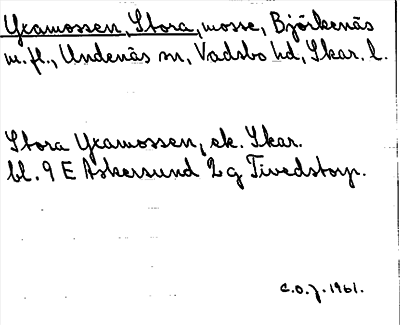 Yxamossen, Stora, mosse, Björkenäs
m.fl., Undenäs sn, Vadsbo hd, Skar. l.
Stora Yxamossen, ek. Skar.
bl. 9 E Askersund 2 g Tivedstorp.
C.O.J. 1961.